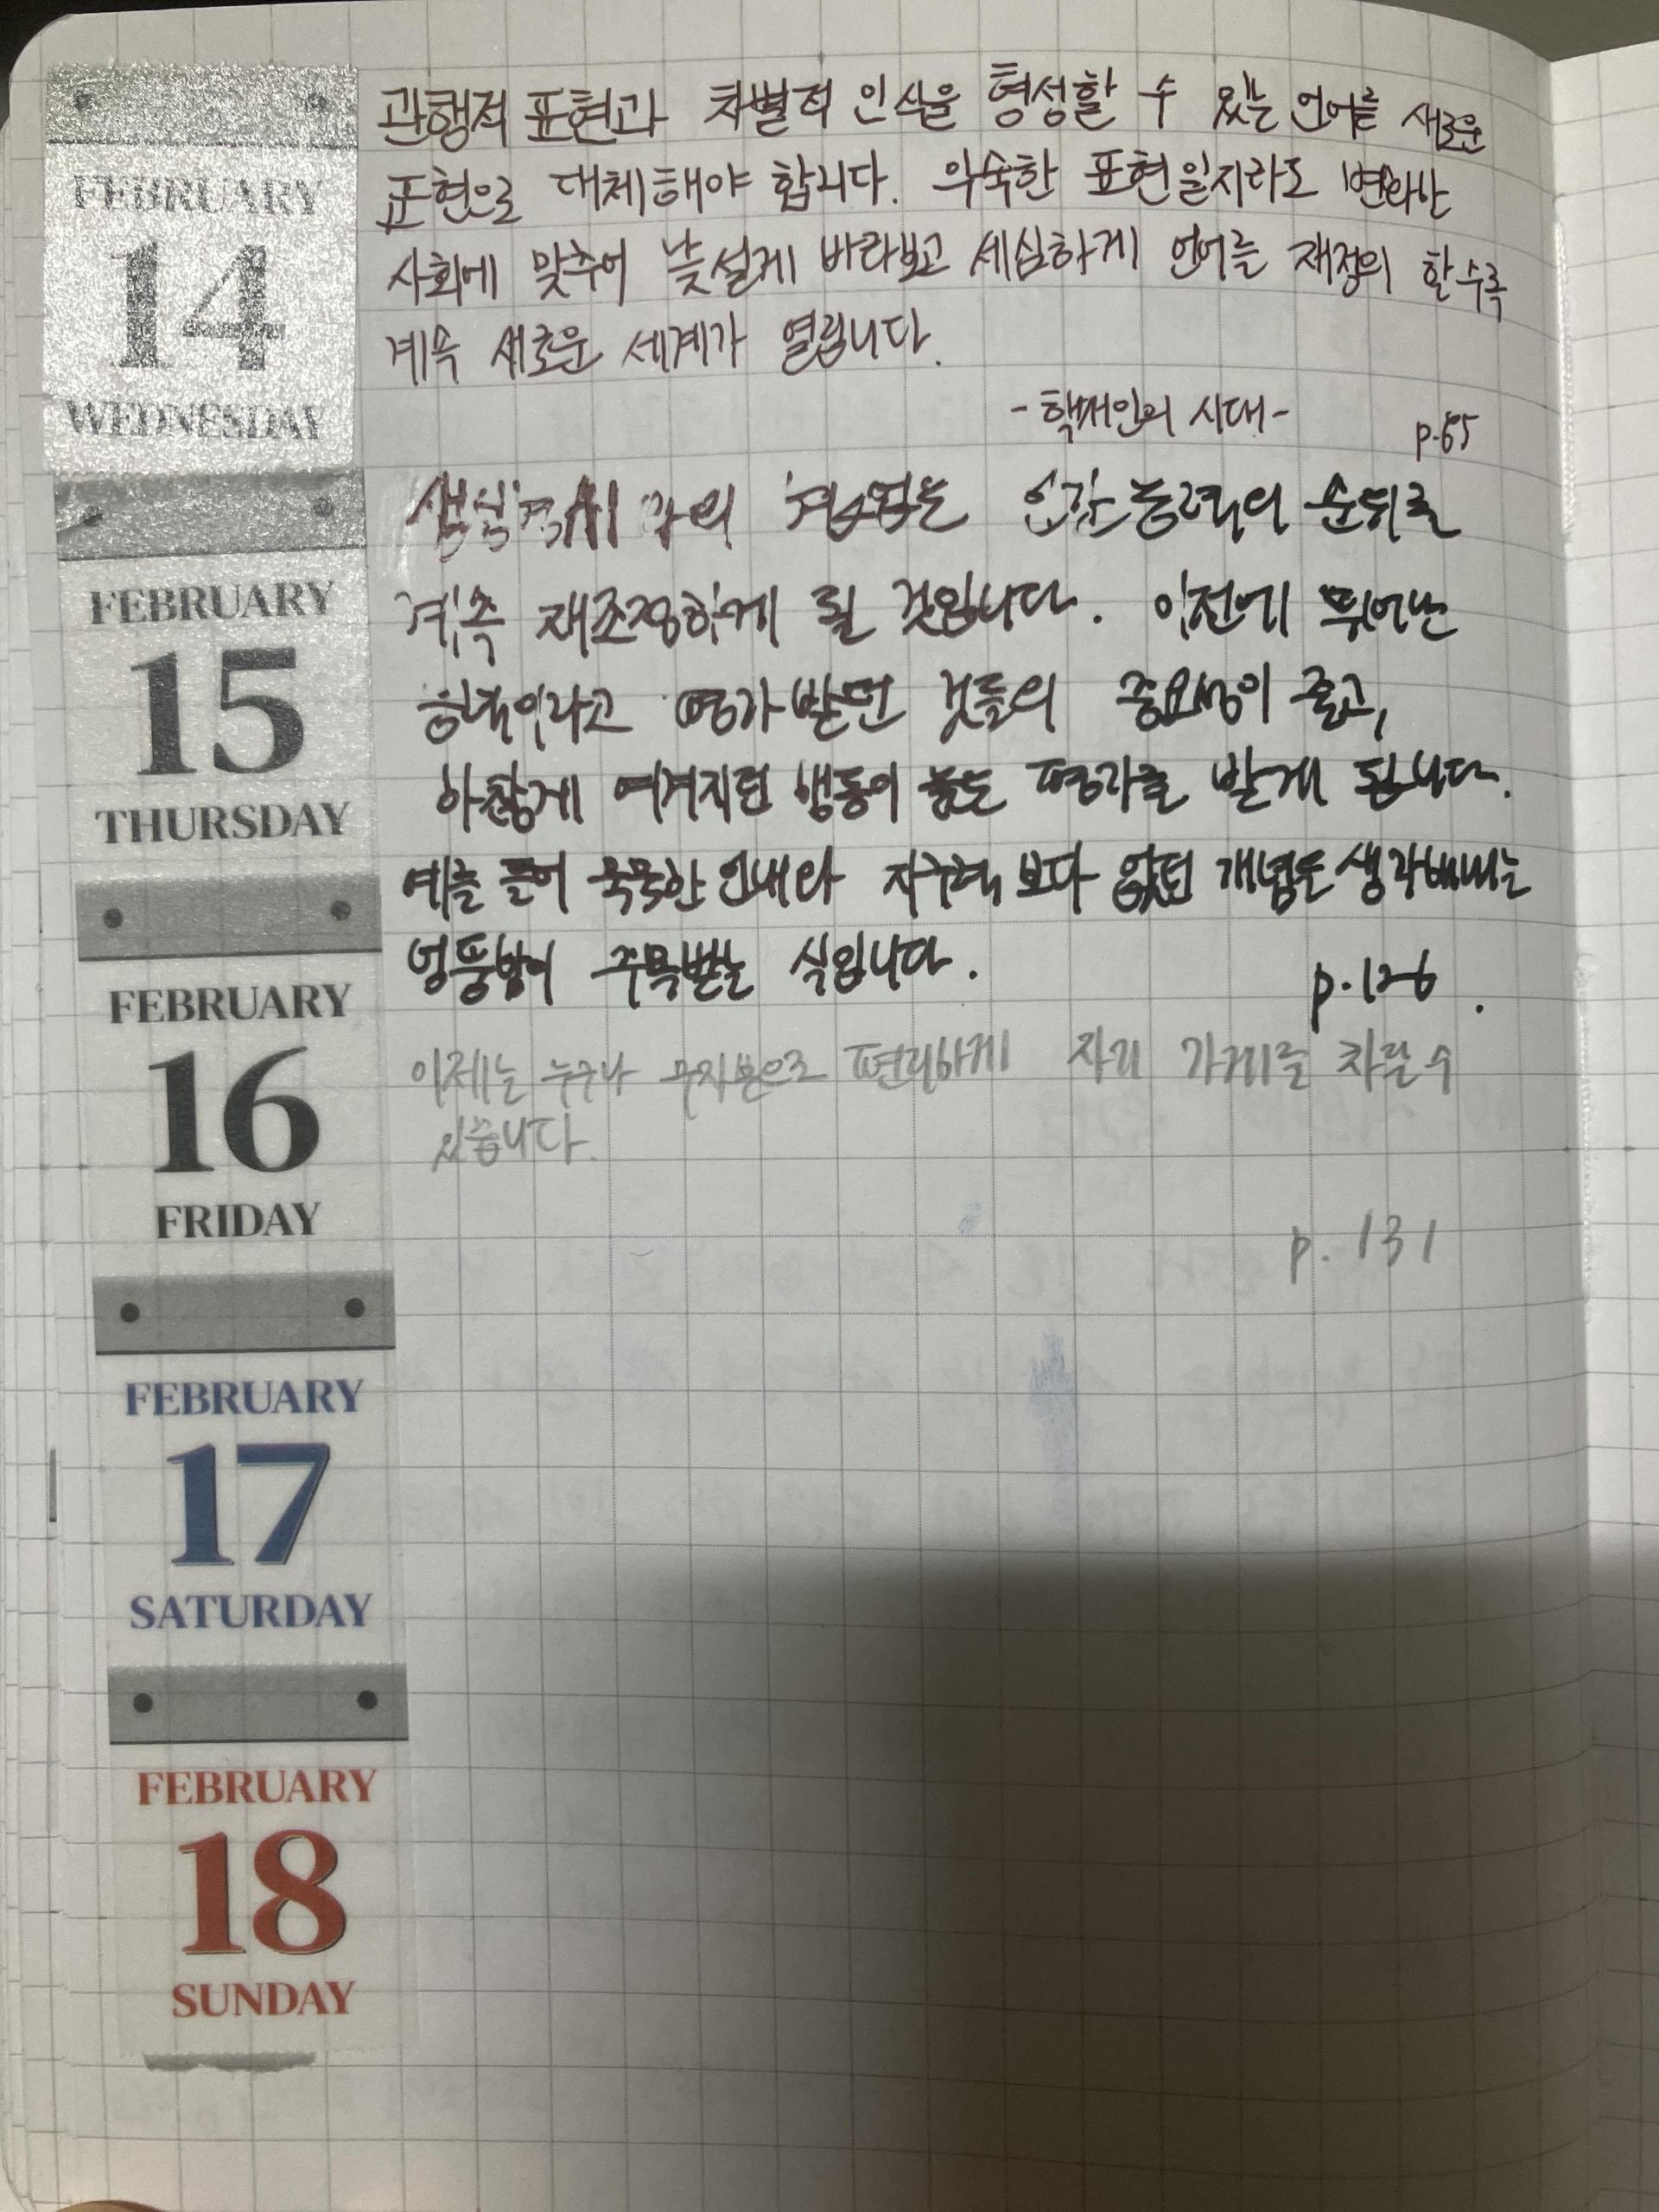 FEBRUARY
14
WEDNESDAY
관행적 표현과 차별적 인식을 형성할 수 있는 언어를 새로운
표현으로 대체해야 합니다. 익숙한 표현일지라도 변화한
사회에 맞추어 낯설게 바라보고 세심하게 언어를 재정의 할수록
계속 새로운 세계가 열립니다.
-핵개인의 시대-
p.65
FEBRUARY
15
THURSDAY
생성형 AI 와의 협업은 인간 능력의 순위를
계속 재조정하게 될 것입니다. 이전에 뛰어난
이라고 평가받던 것들의 중요성이 줄고,
하찮게 여겨지던 행동이 높은 평가를 받게 됩니다.
예를 들어 묵묵한 인내와 지구력 보다 없던 개념도 생각해내는
엉뚱함이 주목받는 식입니다.
p.126.
FEBRUARY
16
FRIDAY
이제는 누구나 무자본으로 편리하게 자기 가게를 차릴 수
있습니다.
p. 131
FEBRUARY
17
SATURDAY
FEBRUARY
18
SUNDAY